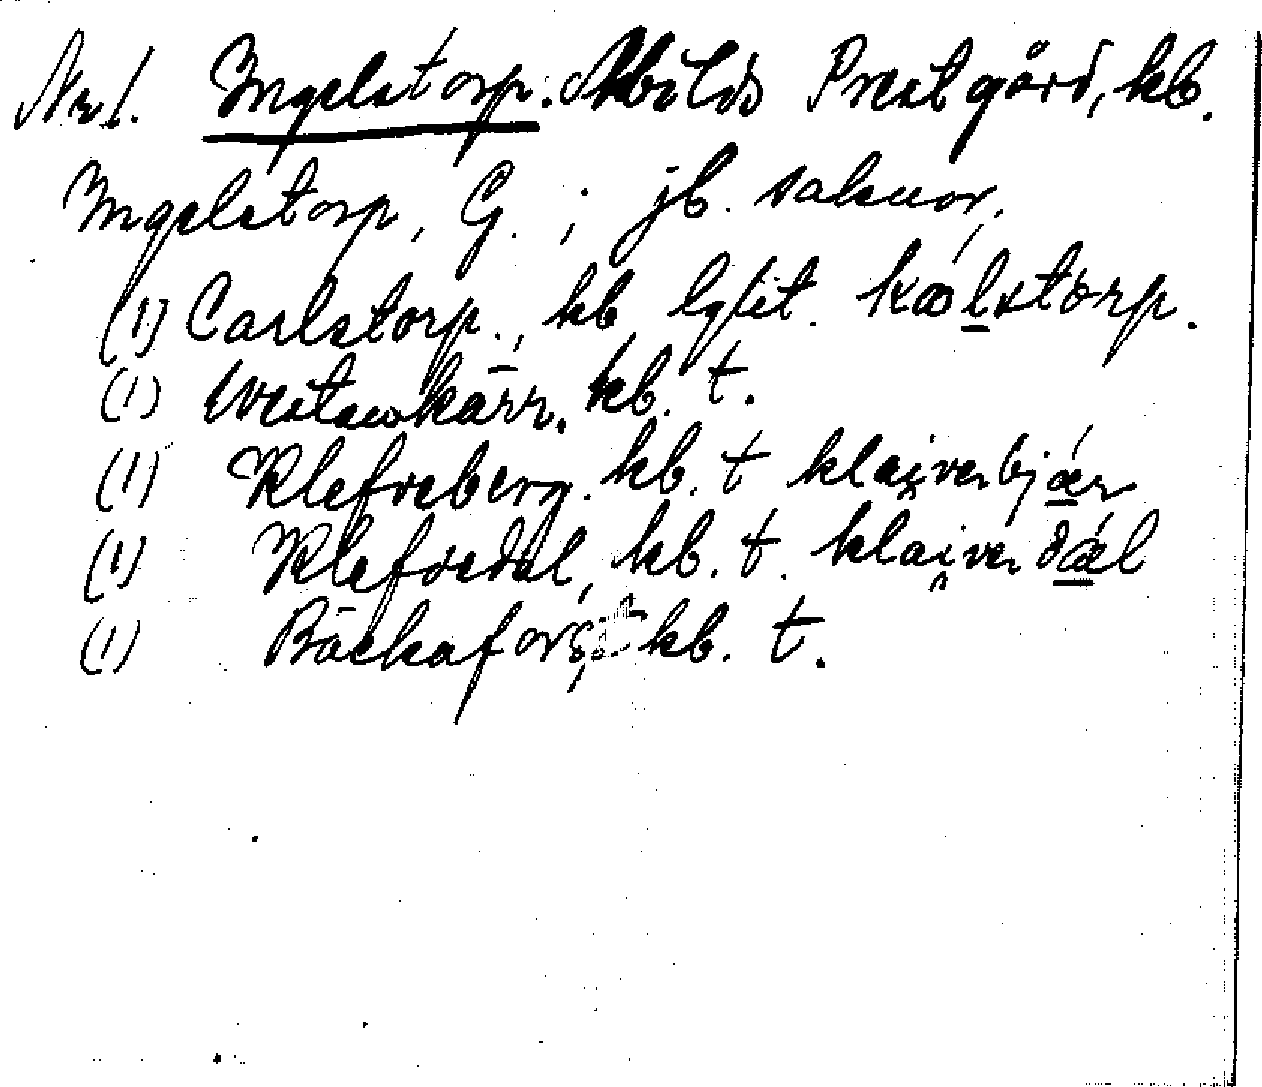 Nr 1. Ingelstorp. Abilds Prestgård, kb.
Ingelstorp, G. ; jb. saknar.
(1) Carlstorp., kb. kælstorp.
(1) kb. t.
(1) Klefveberg. kb. t klaiverbjær
(1) Klefvedal, kb. t. klaiverdæl
(1) Bäckafors, kb. t.